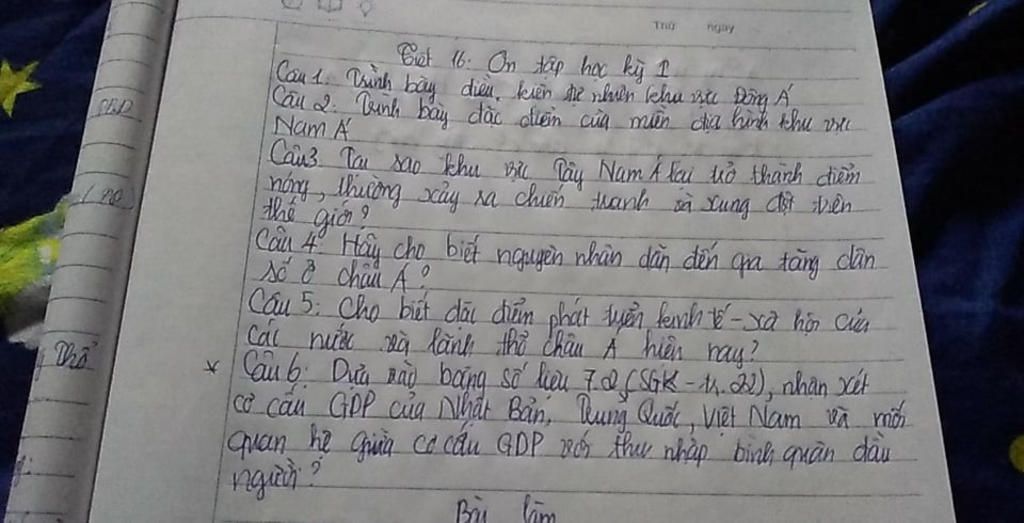 Thứ ngày
Tiết 16: Ôn tập học kỳ I
Câu 1. Trình bày điều kiện tự nhiên khu vực Đông Á
Câu 2. Trình bày đặc điểm của miền địa hình khu vực
Nam Á
Câu 3. Tại sao khu vực Tây Nam Á lại trở thành điểm
nóng, thường xảy ra chiến tranh và xung đột trên
thế giới?
Câu 4: Hãy cho biết nguyên nhân dẫn đến gia tăng dân
số ở châu Á?
Câu 5: Cho biết đặc điểm phát triển kinh tế - xã hội của
các nước và lãnh thổ châu Á hiện nay?
* Câu 6: Dựa vào bảng số liệu 7.2 (SGK - tr. 22), nhận xét
cơ cấu GDP của Nhật Bản, Trung Quốc, Việt Nam và mối
quan hệ giữa cơ cấu GDP với thu nhập bình quân đầu
người?
Bài làm